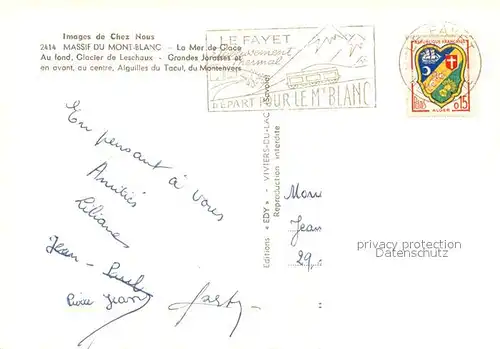 Images de Chez Nous
2414 MASSIF DU MONT-BLANC - La Mer de Glace
Au fond, Glacier de Leschaux - Grandes Jorasses et
en avant, au centre, Aiguilles du Tacul, du Montenvers
LE FAYET
thermal
DÉPART POUR LE Mt BLANC
RÉPUBLIQUE FRANÇAISE
POSTES
0,15
ALGER
En pensant à vous
Amitiés
Liliane
Jean-Paul
Pierre Jean
Editions "EDY" - VIVIERS-DU-LAC (Savoie)
Reproduction interdite
Jean
29,
privacy protection
Datenschutz